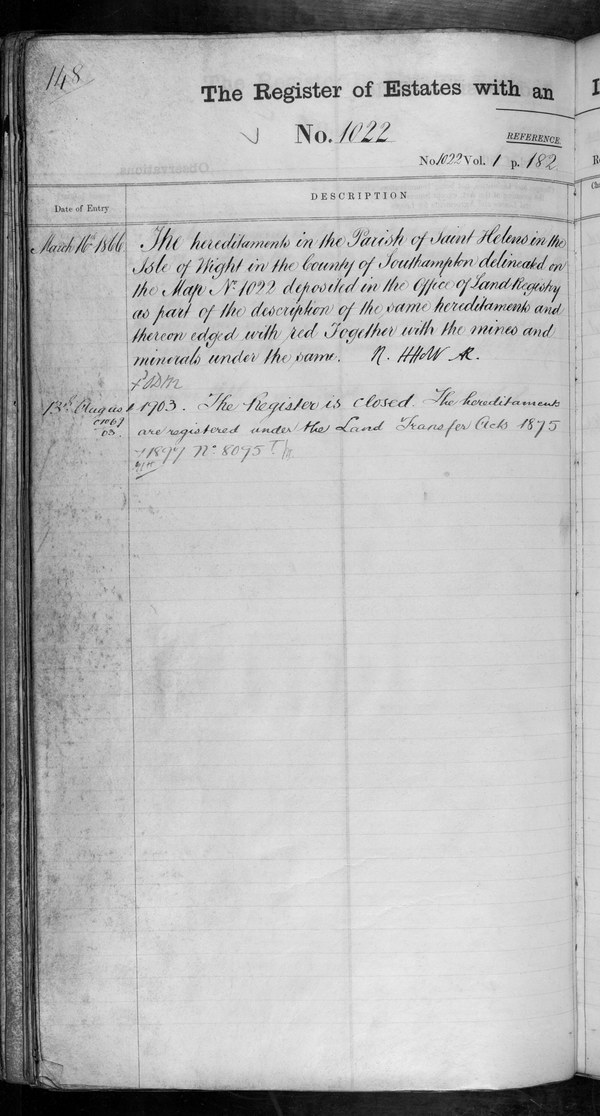 148
The Register of Estates with an
No. 1022
REFERENCE
No 1022 Vol. 1 p. 182
DESCRIPTION
Date of Entry
March 16th 1866
The hereditaments in the Parish of Saint Helens in the
Isle of Wight in the County of Southampton delineated on
the Map No. 1022 deposited in the Office of Land Registry
as part of the description of the same hereditaments and
thereon edged with red Together with the mines and
minerals under the same.
13th August 1903. The Register is closed. The hereditaments
are registered under the Land Transfer Acts 1875
& 1897 No. 8095